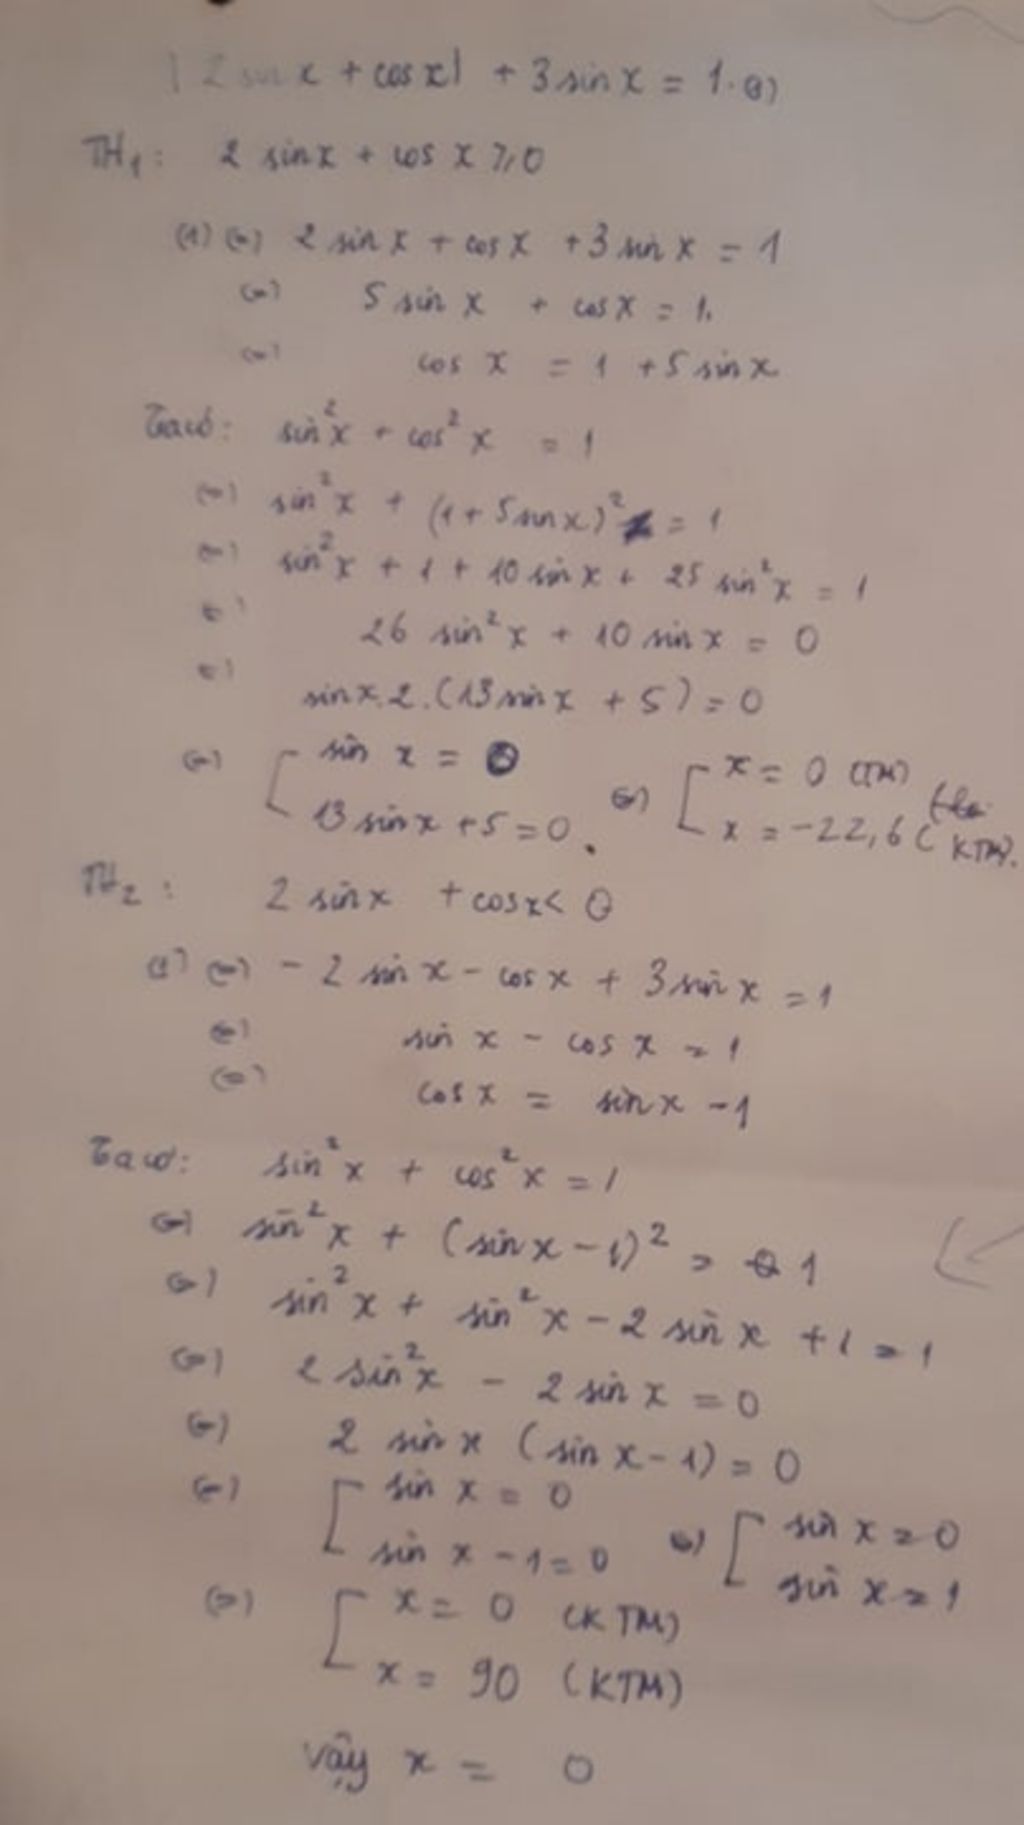 |2 sin x + cos x| + 3 sin x = 1. (1)
TH₁: 2 sin x + cos x ≥ 0
(1) (=) 2 sin x + cos x + 3 sin x = 1
(=) 5 sin x + cos x = 1.
(=) cos x = 1 + 5 sin x
Ta có: sin²x + cos²x = 1
(=) sin²x + (1 + 5 sin x)² = 1
(=) sin²x + 1 + 10 sin x + 25 sin²x = 1
(=) 26 sin²x + 10 sin x = 0
(=) sin x. 2. (13 sin x + 5) = 0
(=) [ sin x = 0 (=) [ x = 0 (TM)
13 sin x + 5 = 0. x = -22,6 (KTM).
TH₂: 2 sin x + cos x < 0
(1) (=) - 2 sin x - cos x + 3 sin x = 1
(=) sin x - cos x = 1
(=) cos x = sin x - 1
Ta có: sin²x + cos²x = 1
(=) sin²x + (sin x - 1)² = 1
(=) sin²x + sin²x - 2 sin x + 1 = 1
(=) 2 sin²x - 2 sin x = 0
(=) 2 sin x (sin x - 1) = 0
(=) [ sin x = 0 (=) [ sin x = 0
sin x - 1 = 0 sin x = 1
(=) [ x = 0 (KTM)
x = 90 (KTM)
Vậy x = 0